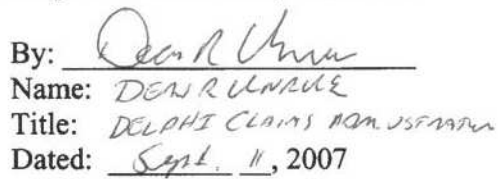 By: Dean R Unrue
Name: DEAN R UNRUE
Title: DELPHI CLAIMS ADMINISTRATOR
Dated: Sept. 11, 2007